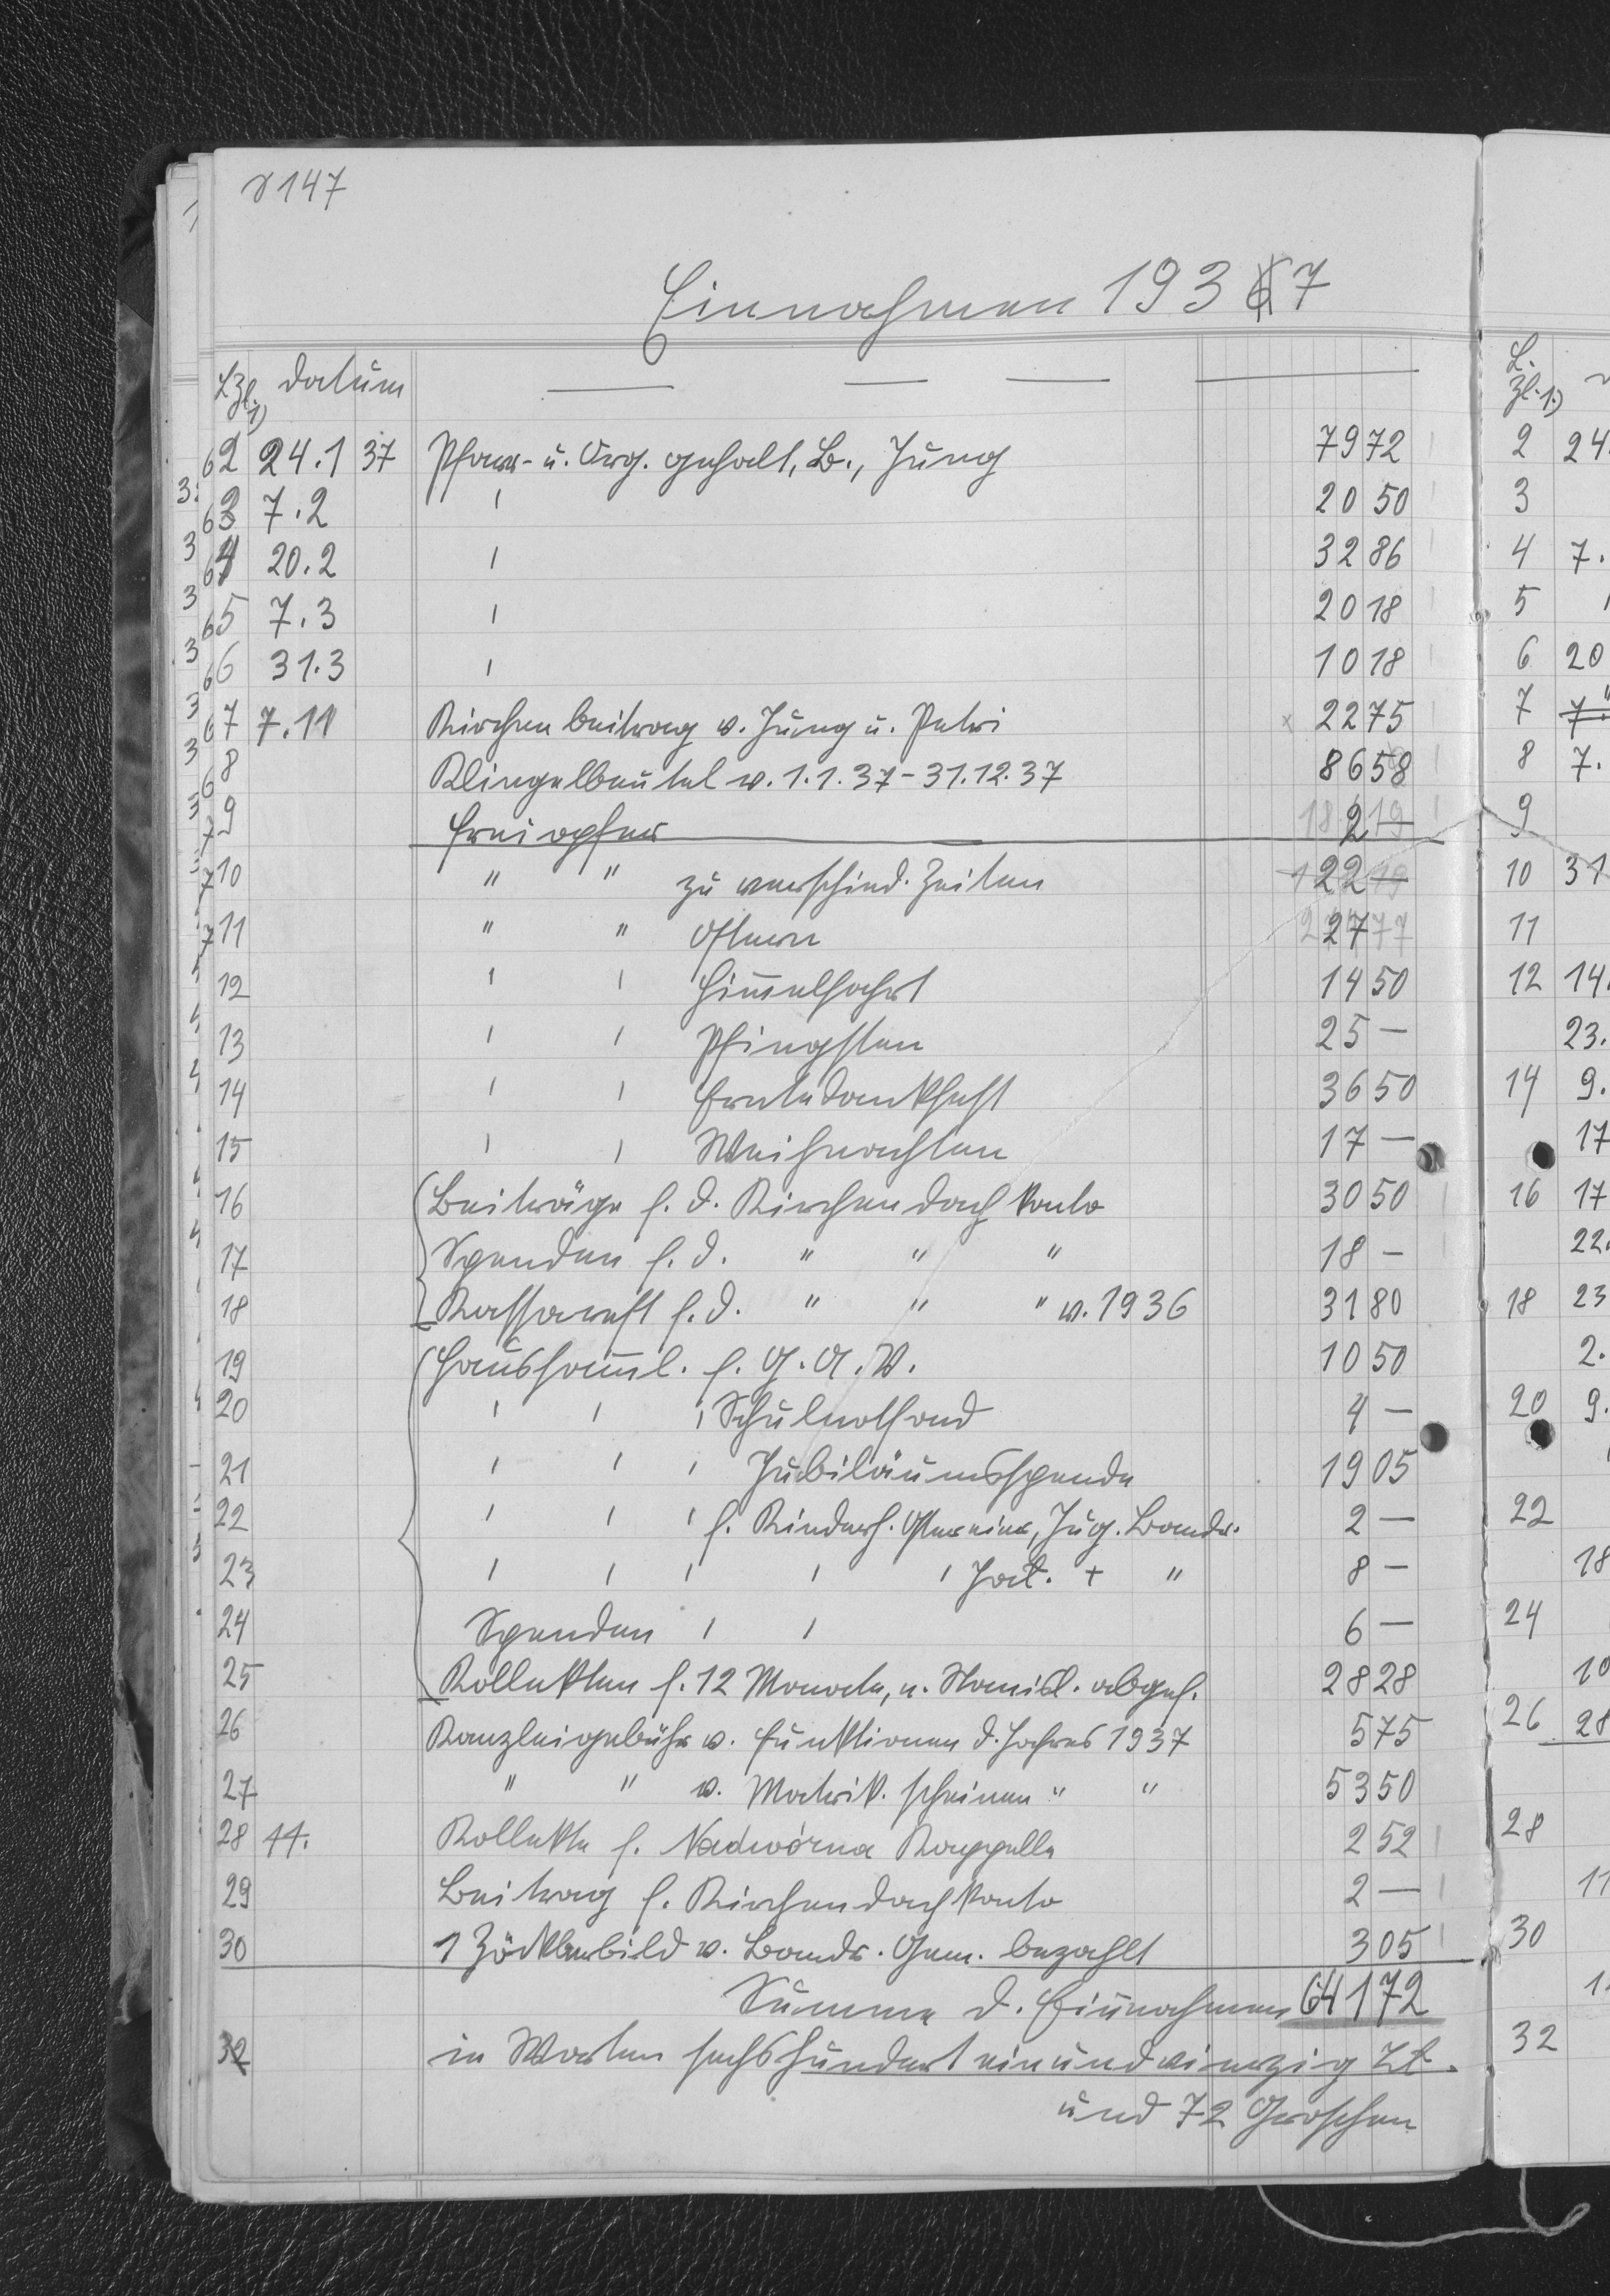 147
Einnahmen 1937
LZl. 1) Datum
2 24.1 37 Pfarr- u. Org. gehalt, B., Jung 79 72
3 7.2 " 20 50
4 20.2 " 32 86
5 7.3 " 20 18
6 31.3 " 10 18
7 7.11 Kirchenbeitrag v. Jung u. Petri 22 75
8 Klingelbeutel v. 1.1.37-31.12.37 86 58
9 Freiopfer 2 —
10 " " zu verschied. Zeiten 22 —
11 " " Ostern 27
12 " " Himmelfahrt 14 50
13 " " Pfingsten 25 —
14 " " Erntedankfest 36 50
15 " " Weihnachten 17 —
16 Beiträge f. d. Kirchendachkonto 30 50
17 Spenden f. d. " " " 18 —
18 Kassarest f. d. " " " v. 1936 31 80
19 Haussamml. f. G. A. V. 10 50
20 " " " Schulnotfond 4 —
21 " " " Jubiläumsspende 19 05
22 " " " f. Kinderh. Jug. Brandr. 2 —
23 " " " " " + " 8 —
24 Spenden " " 6 —
25 Kollekten f. 12 Monate, n. Stanisl. abgef. 28 28
26 Kanzleigebühr v. Funktionen d. Jahres 1937 5 75
27 " " v. Matrik. scheinen " " 53 50
28 11. Kollekte f. Nadwórna Kappelle 2 52
29 Beitrag f. Kirchendachkonto 2 —
30 1 Zöcklerbild v. Brandr. Gem. bezahlt 3 05
Summe d. Einnahmen 641 72
32 in Worten sechshundert einundvierzig Zł.
und 72 Groschen
L.
Zl. 1.)
2 24.
3
4 7.
5
6 20
7 7.
8 7.
9
10 31
11
12 14.
23.
14 9.
17
16 17
22.
18 23
2.
20 9.
22
18
24
10
26 28
28
11
30
32